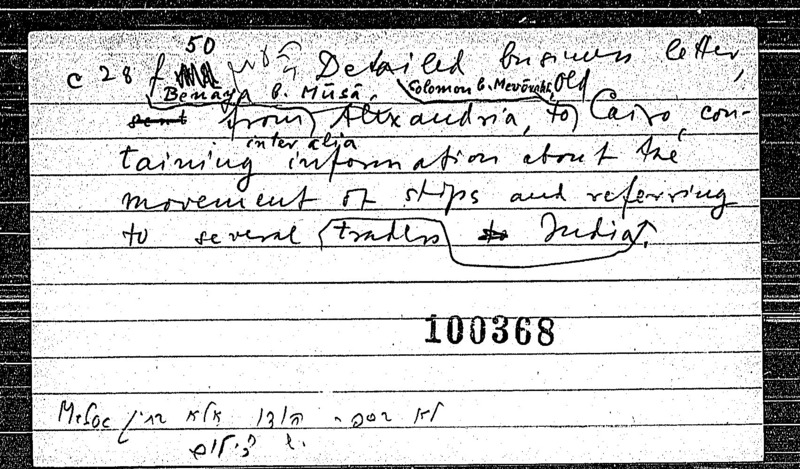 50
c 28 f Detailed business letter,
Benāya b. Mūsā, Solomon b. Mevōrakh, Old
sent from Alexandria, to Cairo, con-
inter alia
taining information about the
movement of ships and referring
to several traders to India.
100368
לא הודו אלא
יש צילום